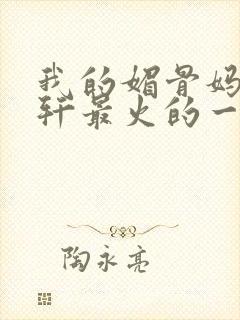 我的媚骨妈
轩最火的一
陶永亮